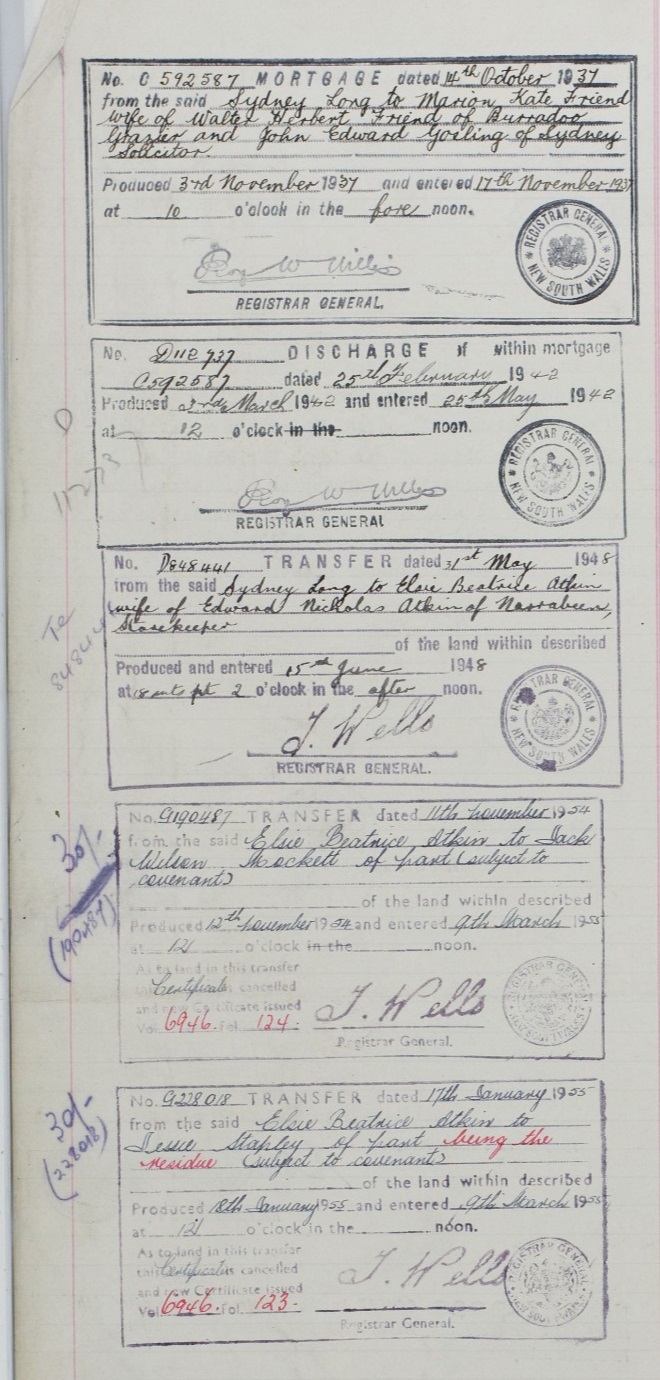 No. C 592587 MORTGAGE dated 14th October 1937
from the said Sydney Long to Marion Kate Friend
wife of Walter Herbert Friend of Burradoo
Grazier and John Edward Gosling of Sydney
Solicitor.
Produced 3rd November 1937 and entered 17th November 1937
at 10 o'clock in the fore noon.
REGISTRAR GENERAL
NEW SOUTH WALES
REGISTRAR GENERAL.
No. D112737 DISCHARGE of within mortgage
C592587 dated 25th February 1942
Produced 2nd March 1942 and entered 25th May 1942
at 12 o'clock in the noon.
REGISTRAR GENERAL
NEW SOUTH WALES
REGISTRAR GENERAL
No. D848441 TRANSFER dated 31st May 1948
from the said Sydney Long to Elsie Beatrice Atkin
wife of Edward Nicholas Atkin of Narrabeen,
Storekeeper
of the land within described
Produced and entered 15th June 1948
at 18 mts pt 2 o'clock in the after noon.
REGISTRAR GENERAL
NEW SOUTH WALES
J. Wells
REGISTRAR GENERAL.
30/-
(190487)
No. G190487 TRANSFER dated 11th November 1954
from the said Elsie Beatrice Atkin to Jack
Wilson Mockett of part (subject to
covenant)
of the land within described
Produced 12th November 1954 and entered 9th March 1955
at 12 o'clock in the noon.
As to land in this transfer
this Certificate is cancelled
and new Certificate issued
Vol. 6946. Fol. 124.
J. Wells
Registrar General.
REGISTRAR GENERAL
NEW SOUTH WALES
30/-
(228018)
No. G228018 TRANSFER dated 17th January 1955
from the said Elsie Beatrice Atkin to
Jessie Stapley of part being the
residue (subject to covenant)
of the land within described
Produced 18th January 1955 and entered 9th March 1955
at 12 o'clock in the noon.
As to land in this transfer
this Certificate is cancelled
and new Certificate issued
Vol. 6946. Fol. 123.
J. Wells
Registrar General.
REGISTRAR GENERAL
NEW SOUTH WALES